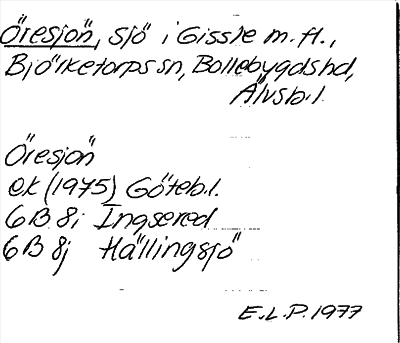 Öresjön, sjö i Gisshe m.fl.,
Björketorps sn, Bollebygds hd,
Älvsb.l.
Öresjön
ek (1975) Göteb.l.
6B 8i Ingsered
6B 8j Hällingsjö
E.L.P. 1977